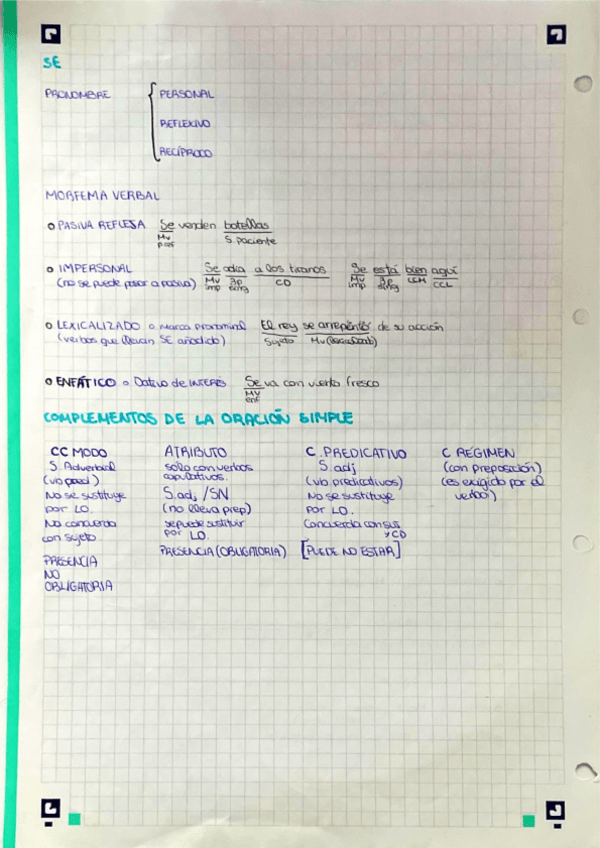 SE
PRONOMBRE
PERSONAL
REFLEXIVO
RECÍPROCO
MORFEMA VERBAL
PASIVA REFLEJA Se venden botellas
Mv pas S. paciente
IMPERSONAL Se odia a los tiranos Se está bien aquí
(no se puede pasar a pasiva) Mv imp 3p sing CD Mv imp 3p sing CCM CCL
LEXICALIZADO o Marca pronominal El rey se arrepintió de su acción
(verbos que llevan SE añadido) Sujeto Mv
ENFÁTICO o Dativo de INTERÉS Se va con viento fresco
MV enf
COMPLEMENTOS DE LA ORACIÓN SIMPLE
CC MODO
S. Adverbial
(vb pred)
No se sustituye
por LO.
No concuerda
con sujeto.
PRESENCIA
NO
OBLIGATORIA
ATRIBUTO
solo con verbos
copulativos.
S.adj /SN
(no lleva prep)
se puede sustituir
por LO.
PRESENCIA (OBLIGATORIA)
C. PREDICATIVO
S adj
(vb predicativos)
No se sustituye
por LO.
Concuerda con suj
y CD
[PUEDE NO ESTAR]
C RÉGIMEN
(con preposición)
(es exigido por el
verbo)